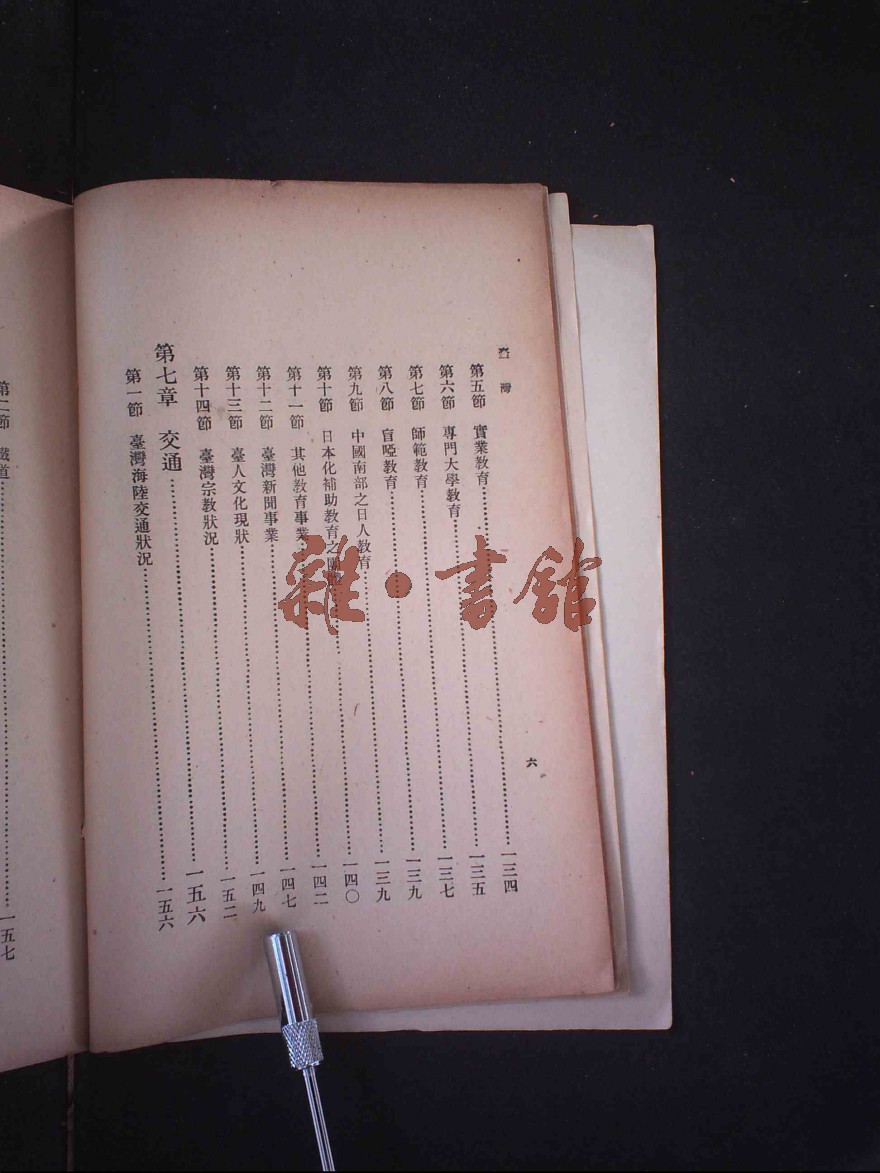 臺灣
六
第五節 實業教育……一三四
第六節 專門大學教育……一三五
第七節 師範教育……一三七
第八節 盲啞教育……一三九
第九節 中國南部之日人教育……一三九
第十節 日本化補助教育之……一四〇
第十一節 其他教育事業……一四二
第十二節 臺灣新聞事業……一四七
第十三節 臺人文化現狀……一四九
第十四節 臺灣宗教狀況……一五二
第七章 交通……一五六
第一節 臺灣海陸交通狀況……一五六
第二節 鐵道……一五七
雜·書館